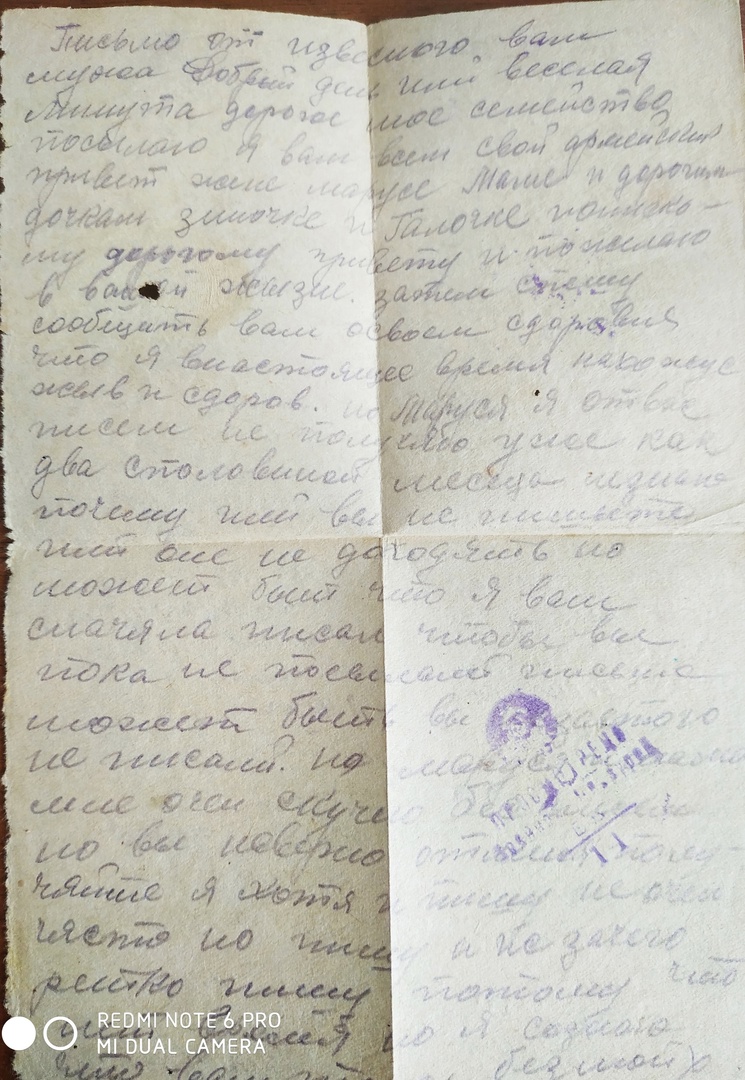 Письмо от извесного вам
мужа Добрый день или веселая
Минута дорогое мое семейство
посылаю я вам всем свой армейский
привет жене марусе Маме и дорогим
дочкам зиночке и Галочке понизко-
му дорогому привету и пожелаю
в вашей жизне. затем спешу
сообщить вам освоем сдоровия
что я внастоящее время нахожус
жыв и сдоров. но Маруся я отвас
писем не получяю уже как
два споловиной месяца незнаю
почему или вы не пишыте
или оне не доходять но
может быт что я вам
сначяла писал чтобы вы
пока не посылали письма
может быть вы изаетого
не писали. но маруся
мне очен скучно без
но вы наверно отменя полу-
чяйте я хотя и пишу не очен
часто но пишу а изачего
ретко пишу потому что
нет время но я сознаю
что вам
ПРОСМОТРЕНО
11
REDMI NOTE 6 PRO
MI DUAL CAMERA